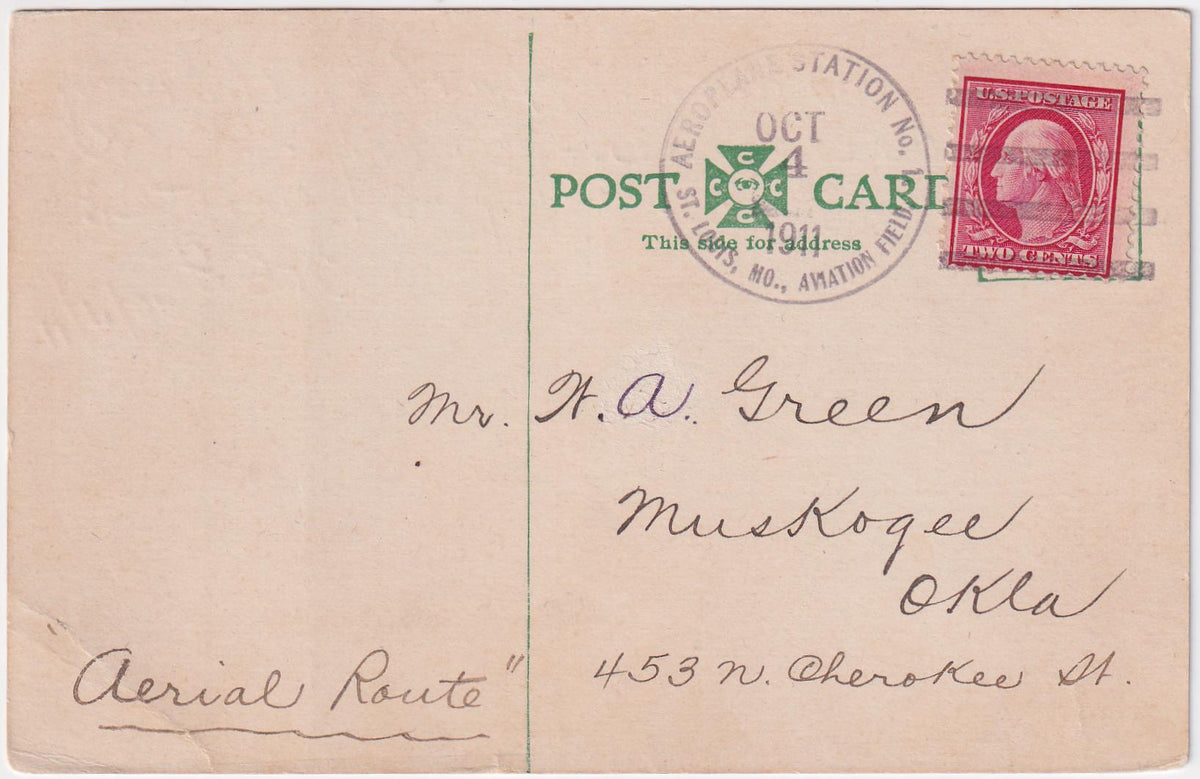 AEROPLANE STATION No. 1
OCT
4
1911
ST. LOUIS, MO., AVIATION FIELD
U.S. POSTAGE
TWO CENTS
POST CARD
C
C C
C
This side for address
Mr. W. A. Green
Muskogee
Okla
453 N. Cherokee St.
Aerial Route"